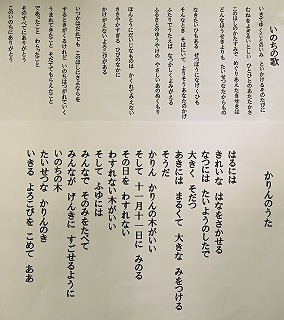 いのちの歌
いきてゆくことのいみ といかけるそのたびに
むねをよぎる いとしい ひとびとのあたたかさ
このほしのかたすみで めぐりあえたきせきは
どんなほうせきよりも たいせつなたからもの
なきたいひもある ぜつぼうになげくひも
そんなときそばにいて よりそうあなたのかげ
ふたりでうたえば なつかしくよみがえる
ふるさとのゆうやけの やさしいあのぬくもり
ほんとうにだいじなものは かくれてみえない
ささやかすぎる ひびのなかに
かけがえない よろこびがある
いつかはだれでも このほしにさよならを
するときがくるけれど いのちはつがれてゆく
うまれてきたこと そだててもらえたこと
であったこと わらったこと
そのすべてにありがとう
このいのちにありがとう
かりんのうた
はるには
きれいな はなをさかせる
なつには たいようのしたで
大きく そだつ
あきには まるくて 大きな みをつける
そうだ
かりん かりんの木がいい
そして 十一月十一日に みのる
その日を わすれない
わすれない木がいい
そして ふゆには
みんなで そのみをたべて
みんなが げんきに すごせるように
いのちの木
たいせつな かりんのき
いきる よろこびを こめて ああ